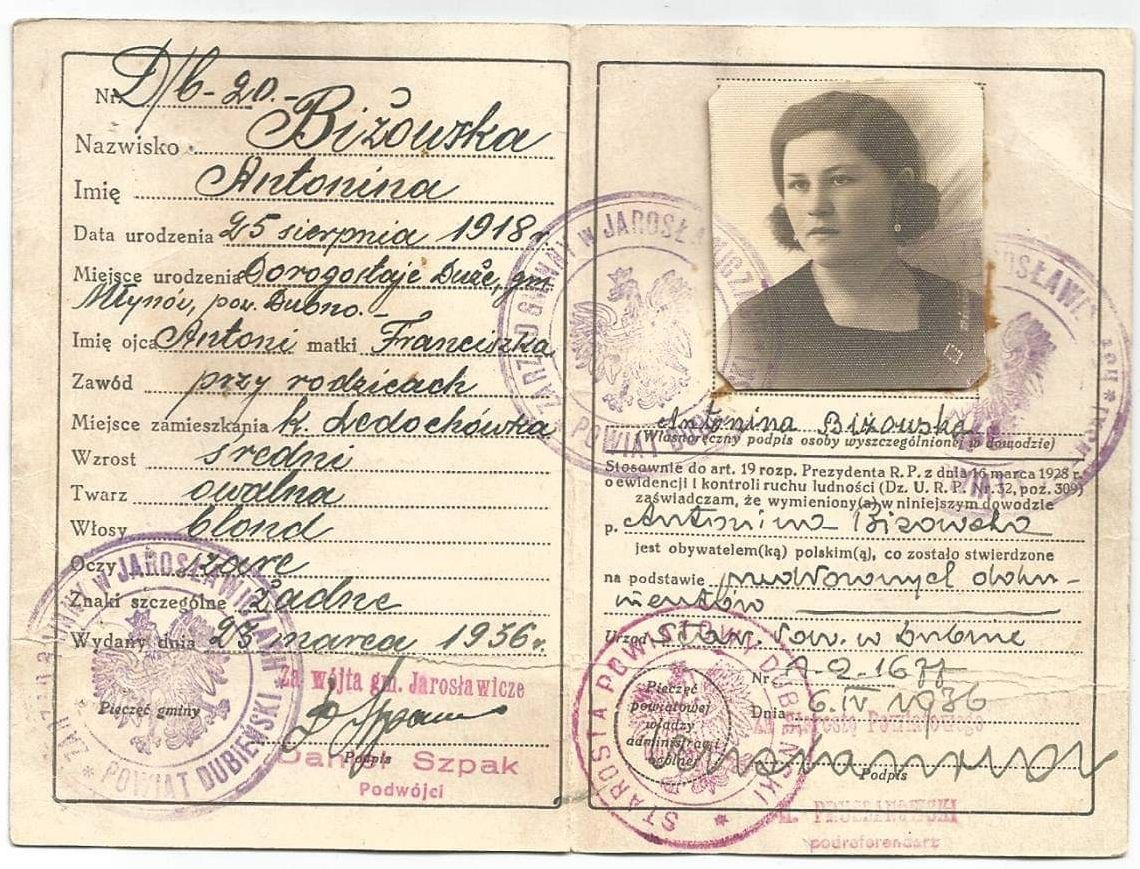 Nr. D/6-20.-
Nazwisko Biżowska
Imię Antonina
Data urodzenia 25 sierpnia 1918 r.
Miejsce urodzenia Dorogostaje Duże, gm.
Młynów, pow. Dubno.-
Imię ojca Antoni matki Franciszka
Zawód przy rodzicach
Miejsce zamieszkania k. Ledochówka
Wzrost średni
Twarz owalna
Włosy blond
Oczy szare
Znaki szczególne Żadne
Wydany dnia 23 marca 1936 r.
Pieczęć gminy
Za wójta gm. Jarosławicze
Podpis
Szpak
Podwójci
ZARZĄD GMINNY W JAROSŁAWICZACH
* POWIAT DUBIEŃSKI *
ZARZĄD GMINNY W JAROSŁAWICZACH
POWIAT
Antonina Biżowska
(Własnoręczny podpis osoby wyszczególnionej w dowodzie)
Stosownie do art. 19 rozp. Prezydenta R. P. z dnia 16 marca 1928 r.
o ewidencji i kontroli ruchu ludności (Dz. U. R. P. Nr. 32, poz. 309)
zaświadczam, że wymieniony(a) w niniejszym dowodzie
p. Antonina Bizowska
jest obywatelem(ką) polskim(ą), co zostało stwierdzone
na podstawie przedłożonych doku-
mentów
Urząd Star. Pow. w Dubnie
Nr.
Dnia 6.IV 1936
Pieczęć
powiatowej
władzy
administracji
ogólnej
STAROSTA POWIATOWY DUBIEŃSKI *
Za Starostę Powiatowego
Podpis
podreferendarz